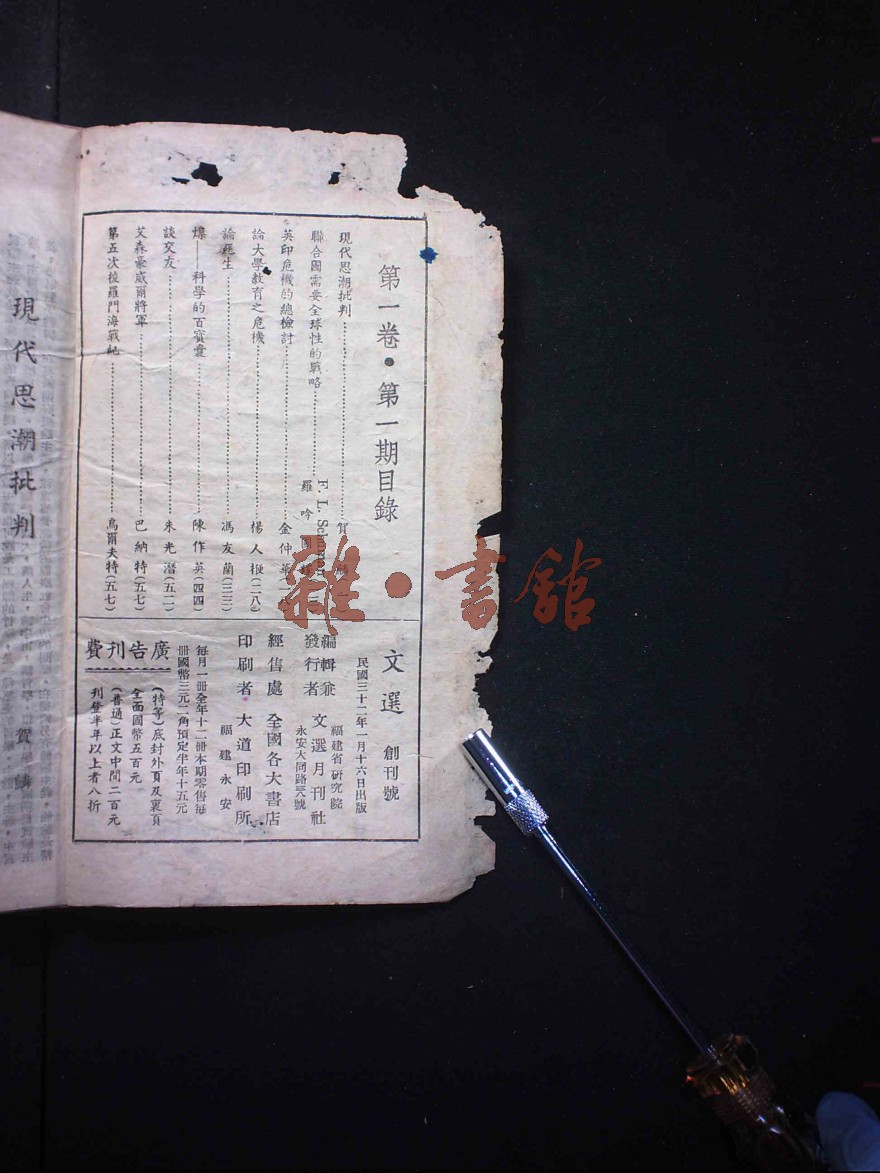 第一卷•第一期目錄
現代思潮批判……賀
聯合國需要全球性的戰略……F. L. Schuman
羅吟圃
英印危機的總檢討……金仲華
論大學教育之危機……楊人楩(二八)
論悲生……馮友蘭(三三)
煤——科學的百寶囊……陳作英(四四)
談交友……朱光潛(五二)
艾森豪威爾將軍……巴納特(五七)
第五次梭羅門海戰紀……烏爾夫特(五七)
文選 創刊號
民國三十二年一月十六日出版
編輯兼發行者
福建省研究院
文選月刊社
永安大同路三八號
經售處 全國各大書店
印刷者 大道印刷所
福建永安
每月一冊全年十二冊本期零售每
冊國幣三元二角預定半年十五元
廣告刊費
(特等)底封外頁及裏頁
全面國幣五百元
(普通)正文中間二百元
刊登半年以上者八折
現代思潮批判
賀麟
雜•書館